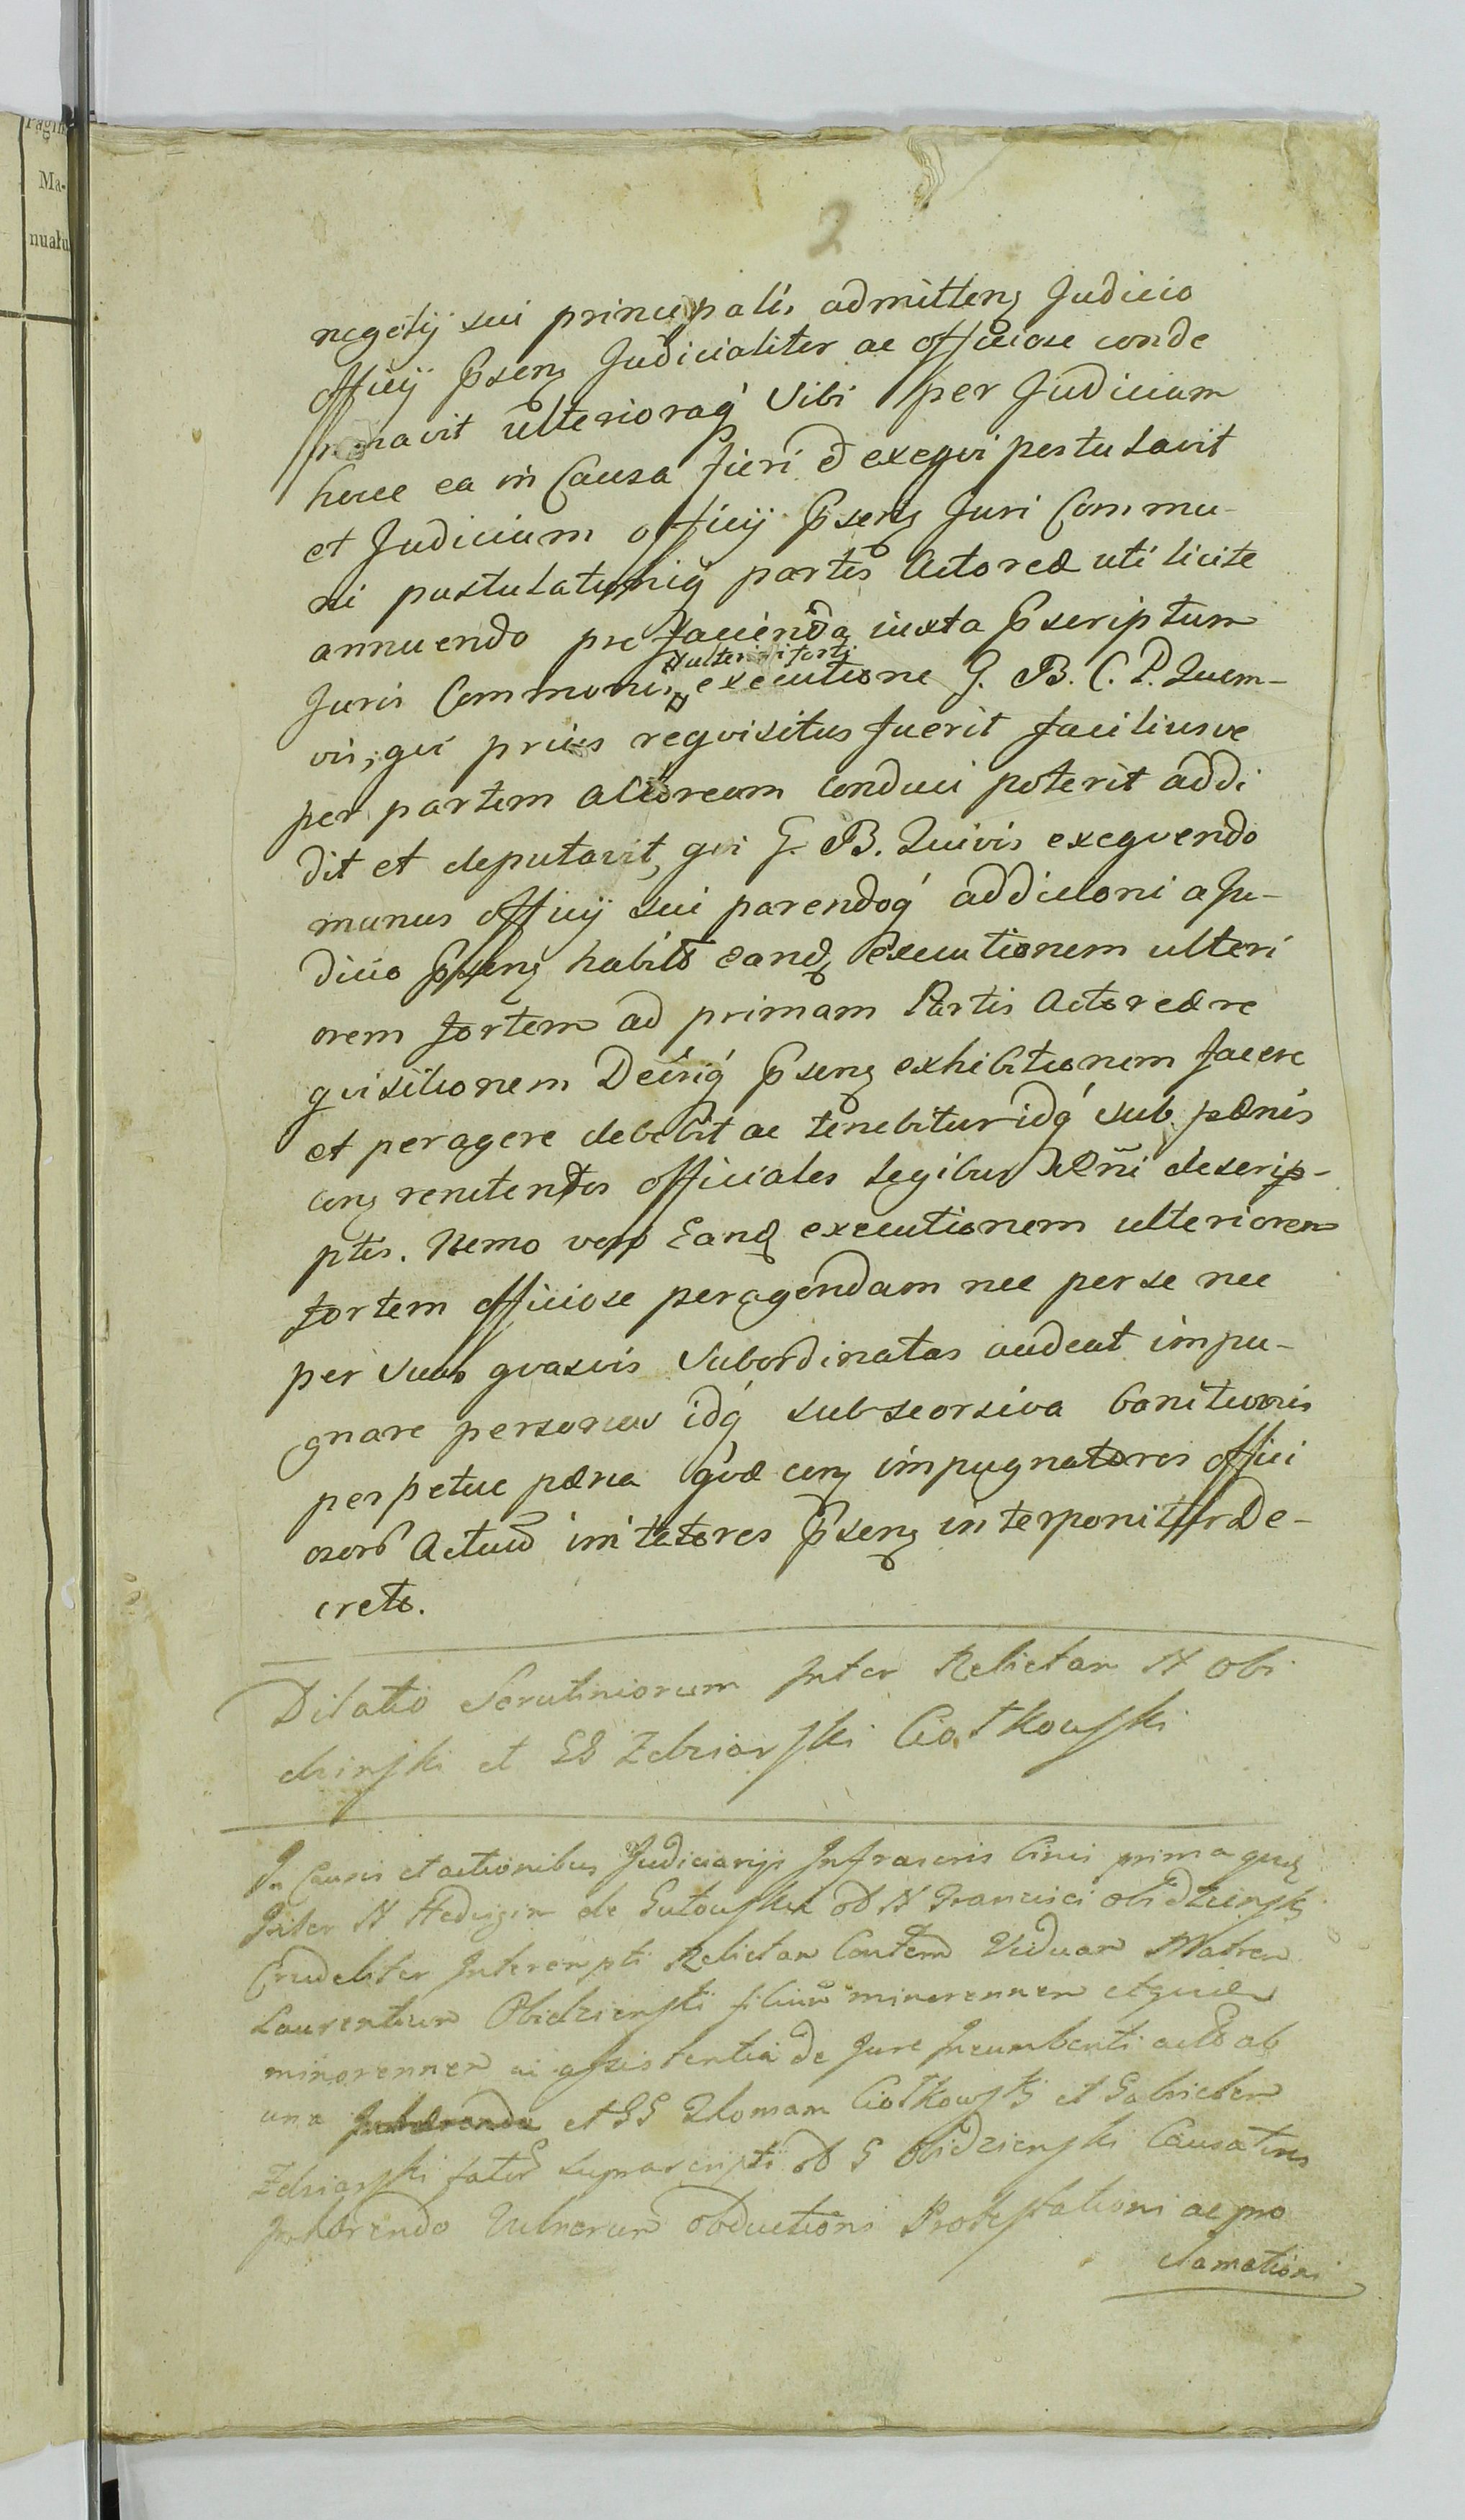 Pagin
Ma-
nuału
2
negotij sui principalis admittens Judicio
officij psens Judicialiter ac officiose conde
mnavit ulterioraq sibi per Judicium
hocce ea in Causa fieri et exeqvi postulavit
et Judicium officij psens Juri Commu-
ni postulationiq partis Actoreæ uti licite
annuendo pro facienda iuxta pscriptum
ulteriori forti
Juris Communis executione G. B. C. P. Quem-
vis, qvi prius reqvisitus fuerit faciliusve
per partem actoream conduci poterit addi
dit et deputavit, qvi G. B. Quivis exeqvendo
munus officij sui parendoq addictioni a Ju-
dicio psens habita eand executionem ulteri
orem fortem ad primam Partis Actoreæ re
qvisitionem Decriq psens exhibitionem facere
et peragere debebit ac tenebitur idq sub pænis
cons renitentes officiales legibus Rñi descrip-
ptis. Nemo vero Eand executionem ulteriorem
fortem officiose peragendam nec per se nec
per suas qvasvis subordinatas audeat impu-
gnare personas idq sub seorsiva banitionis
perpetuæ pæna qvæ cons impugnatores offici
osor Actuu psens interponitur De-
creto.
Dilatio Scrutiniorum Inter Relictam N Obi
dzinski et GG Zdziarski Ciołkowski
In Causis et actionibus Judiciarijs Infrascris
Inter N Hedvigim de Gutowskie N Francisci Obidzinski
Crudeliter Interempti Relictam Viduam Matrem
Laurentium Obidzienski filium minorennem
minorennem assistentia de Jure Incumbenti
una et GG Thomam Ciołkowski et Gabrielem
Zdziarski G Obidzienski
Inhærendo Vulnerum obductioni Protestationi ac pro
clamationi